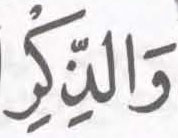 وَالذِّكْرِ